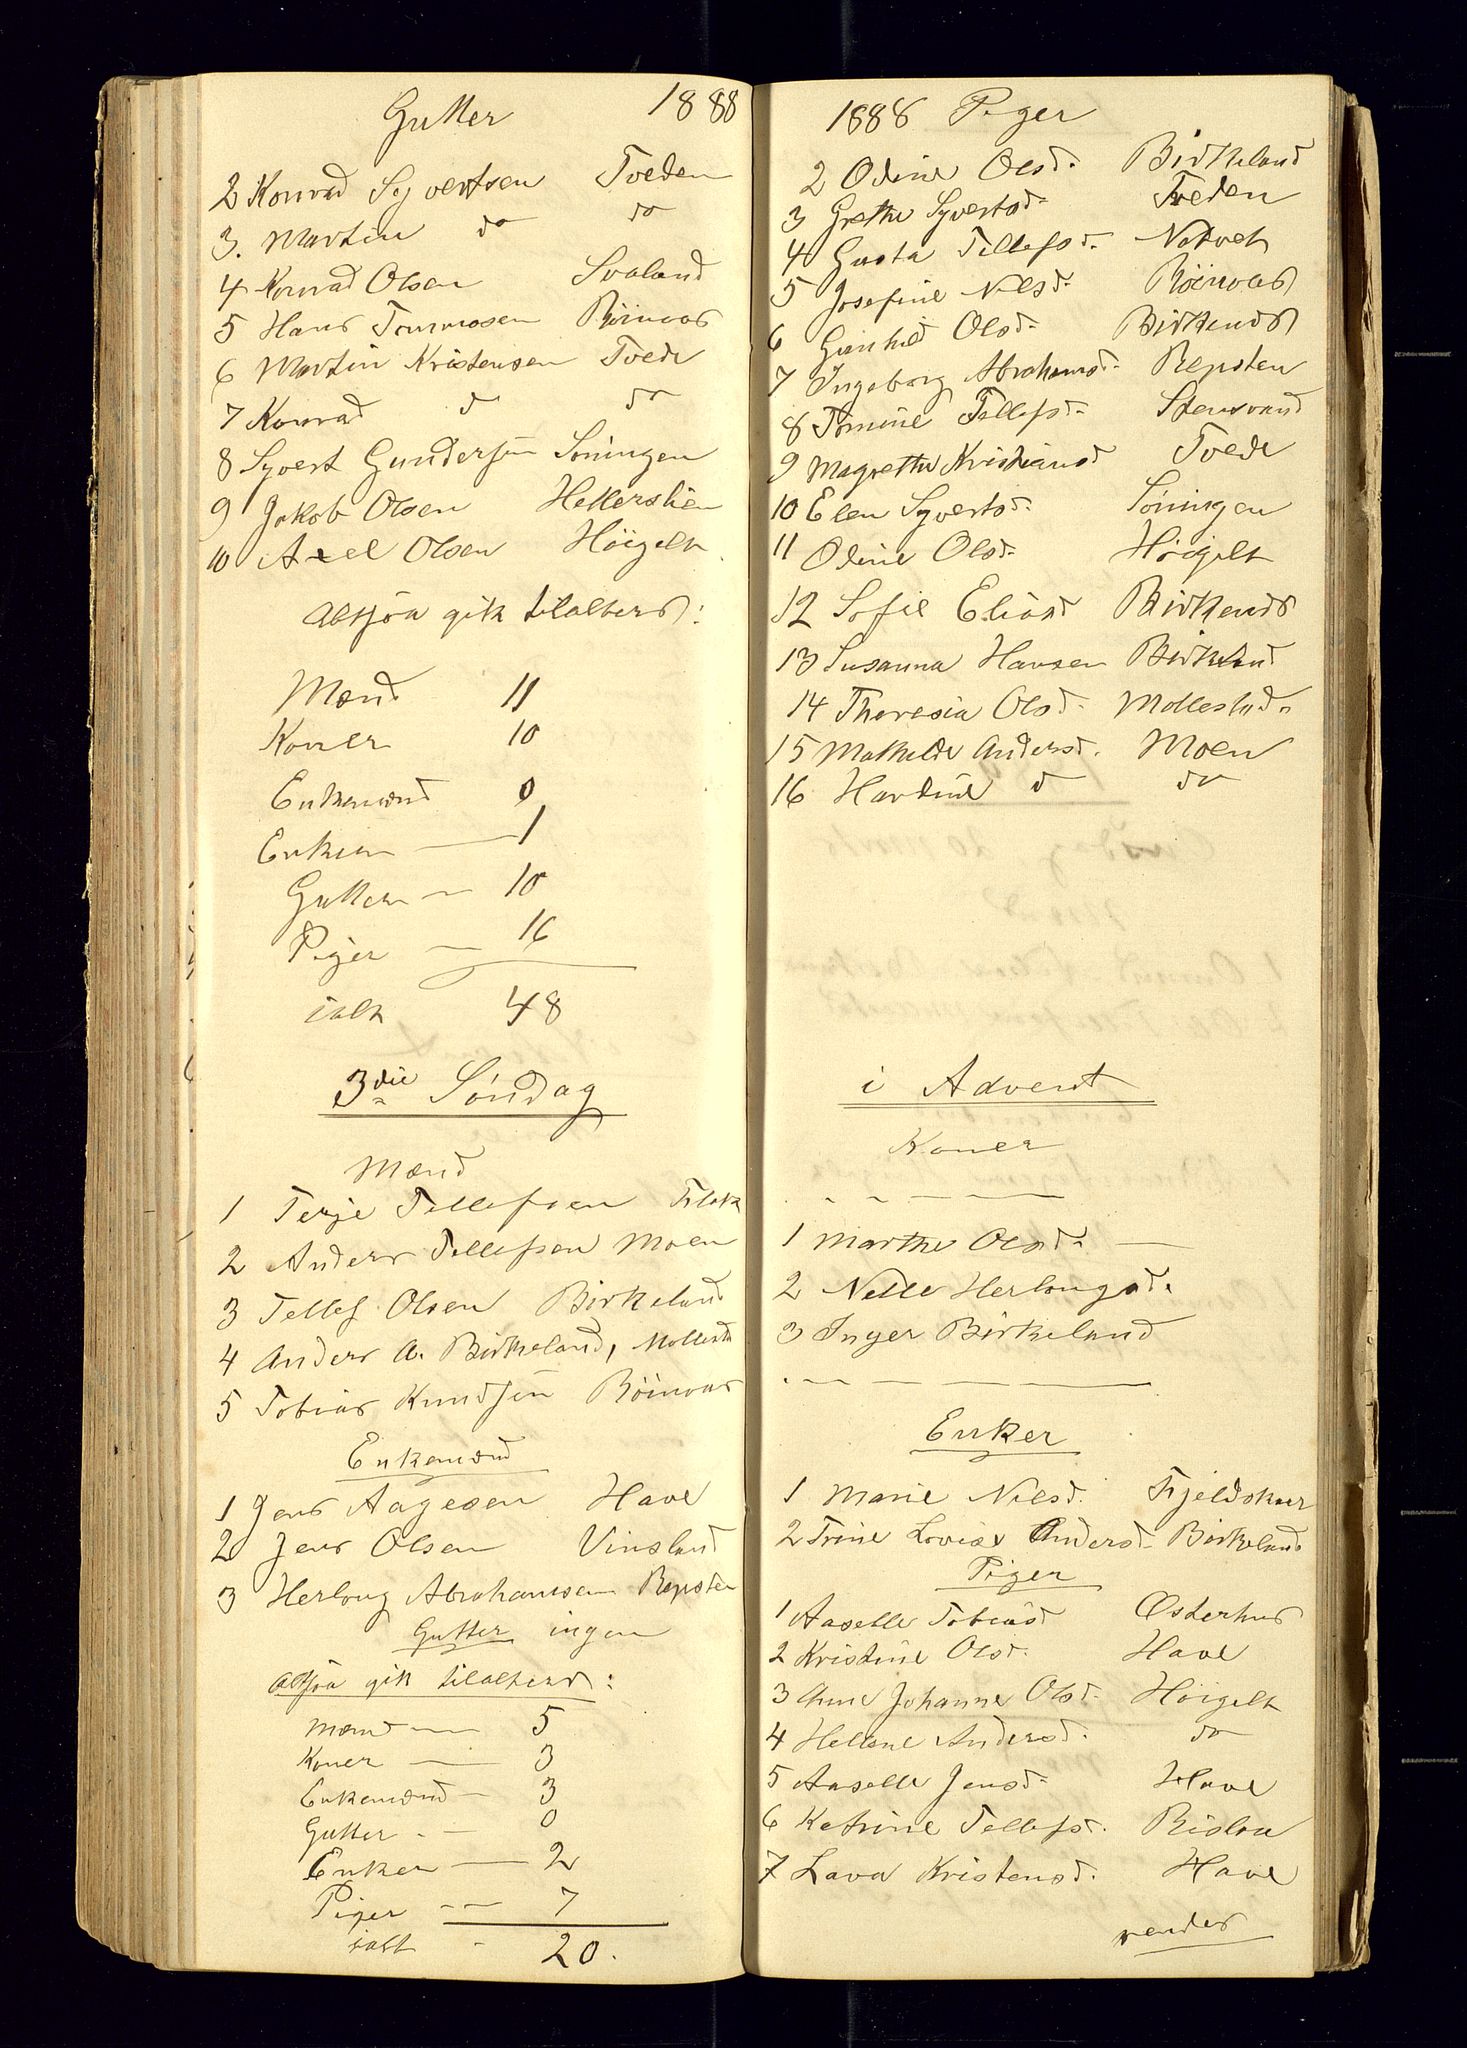 Gutter 1888
2 Konrad Syvertsen Tveden
3. Martin do do
4 Konrad Olsen Svaland
5 Hans Tommosen Röinvas
6 Martin Kristensen Tvede
7 Konrad d do
8 Syvert Gundersen Söningen
9 Jakob Olsen Hellerslien
10 Axel Olsen Höigilt
Altsaa gik tilalters:
Mænd 11
Koner 10
Enkemænd 0
Enken 1
Gutter 10
Piger 16
ialt 48
3die Söndag
Mænd
1 Terje Tellefsen Flak
2 Anders Tellefsen Moen
3 Tellef Olsen Birkeland
4 Anders A. Birkeland, Mollestd
5 Tobias Knudsen Röinvas
Enkemænd
1 Jens Aagesen Have
2 Jens Olsen Vinsland
3 Herloug Abrahamsen Repsten
Gutter ingen
Altsaa gik tilalters:
Mænd 5
Koner 3
Enkemænd 3
Gutter 0
Enker 2
Piger 7
ialt 20.
1888 Piger
2 Odine Olsd. Birkeland
3 Grethe Syvertsd. Tveden
4 Gusta Tellefsd. Natvet
5 Josefine Nilsd. Röinvas
6 Gunhild Olsd. Birkends
7 Ingeborg Abrahamsd. Repsten
8 Tomine Tellefsd. Stensvand
9 Magrethe Kristiansd Tvede
10 Elen Syvertsd. Söningen
11 Odine Olsd. Höigilt
12 Sofie Eliasd Birkends
13 Susanna Hansen Birkeland
14 Theresia Olsd. Mollestad
15 Mathilde Andersd. Moen
16 Hardine d do
i Advent
Koner
1 Marthe Olsd.
2 Nelle Herlougsd.
3 Inger Birkeland
Enker
1 Marie Nilsd. Fjeldskaar
2 Trine Lovise Andersd. Birkeland
Piger
1 Aaselle Tobiasd Osterhus
2 Kristine Olsd. Have
3 Anne Johanne Olsd. Höigilt
4 Hellene Andersd. do
5 Aaselle Jensd. Have
6 Katrine Tellefsd. Rislaa
7 Lava Kristensd. Have
vendes